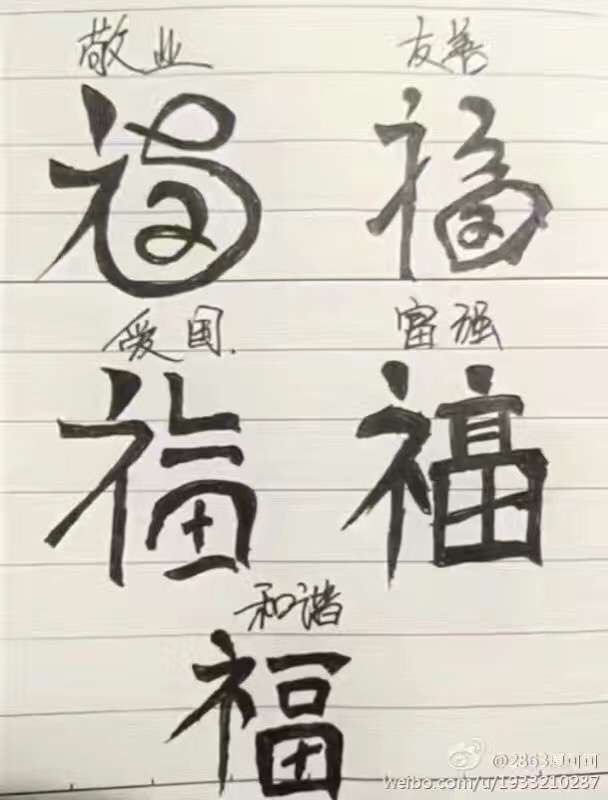 敬业 友善
福 福
爱国. 富强
福 福
和谐
福
weibo.com/u/1933210287